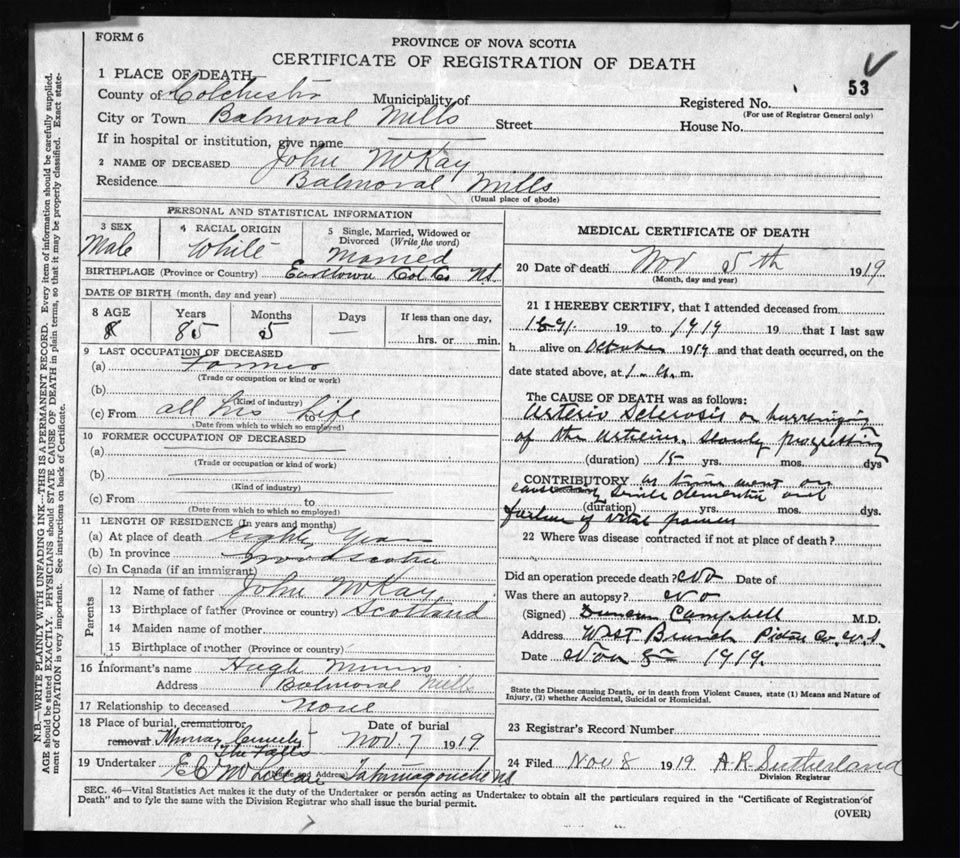 FORM 6
PROVINCE OF NOVA SCOTIA
CERTIFICATE OF REGISTRATION OF DEATH
53
1 PLACE OF DEATH
County of Colchester Municipality of Registered No.
(For use of Registrar General only)
City or Town Balmoral Mills Street House No.
If in hospital or institution, give name
2 NAME OF DECEASED John McKay
Residence Balmoral Mills
(Usual place of abode)
PERSONAL AND STATISTICAL INFORMATION
3 SEX Male
4 RACIAL ORIGIN White
5 Single, Married, Widowed or Divorced (Write the word) Married
BIRTHPLACE (Province or Country) Earltown Col. Co. N.S.
DATE OF BIRTH (month, day and year)
8 AGE Years 85 Months 5 Days — If less than one day, hrs. or min.
9 LAST OCCUPATION OF DECEASED
(a) Farmer
(Trade or occupation or kind or work)
(b)
(Kind of industry)
(c) From all his life
(Date from which to which so employed)
10 FORMER OCCUPATION OF DECEASED
(a)
(Trade or occupation or kind of work)
(b)
(Kind of industry)
(c) From to
(Date from which to which so employed)
11 LENGTH OF RESIDENCE (In years and months)
(a) At place of death Eighty Years
(b) In province Nova Scotia
(c) In Canada (if an immigrant)
Parents
12 Name of father John McKay
13 Birthplace of father (Province or country) Scotland
14 Maiden name of mother
15 Birthplace of mother (Province or country)
16 Informant's name Hugh Munro
Address Balmoral Mills
17 Relationship to deceased none
18 Place of burial, cremation or removal Murray The Falls
Date of burial Nov. 7 1919
19 Undertaker E C
(Name and Address) Tatamagouche NS
MEDICAL CERTIFICATE OF DEATH
20 Date of death Nov 5th 1919
(Month, day and year)
21 I HEREBY CERTIFY, that I attended deceased from
1891. 19 to 1919 19 that I last saw
h alive on October 1919 and that death occurred, on the
date stated above, at 1 a. m.
The CAUSE OF DEATH was as follows:
Arterio Sclerosis or
of the arteries. Slowly progressing
(duration) 15 yrs. mos. dys
CONTRIBUTORY as time went on
senile dementia and
(duration) yrs. mos. dys.
failure of vital powers
22 Where was disease contracted if not at place of death?
Did an operation precede death? No Date of
Was there an autopsy? No
(Signed) Duncan Campbell M.D.
Address West Branch Pictou Co. N.S.
Date Nov 8th 1919.
State the Disease causing Death, or in death from Violent Causes, state (1) Means and Nature of
Injury, (2) whether Accidental, Suicidal or Homicidal.
23 Registrar's Record Number
24 Filed Nov 8 1919 A.R. Sutherland
Division Registrar
SEC. 46—Vital Statistics Act makes it the duty of the Undertaker or person acting as Undertaker to obtain all the particulars required in the "Certificate of Registration of
Death" and to fyle the same with the Division Registrar who shall issue the burial permit.
(OVER)
N.B.—WRITE PLAINLY WITH UNFADING INK—THIS IS A PERMANENT RECORD. Every item of information should be carefully supplied.
AGE should be stated EXACTLY. PHYSICIANS should STATE CAUSE OF DEATH in plain terms, so that it may be properly classified. Exact state-
ment of OCCUPATION is very important. See instructions on back of Certificate.